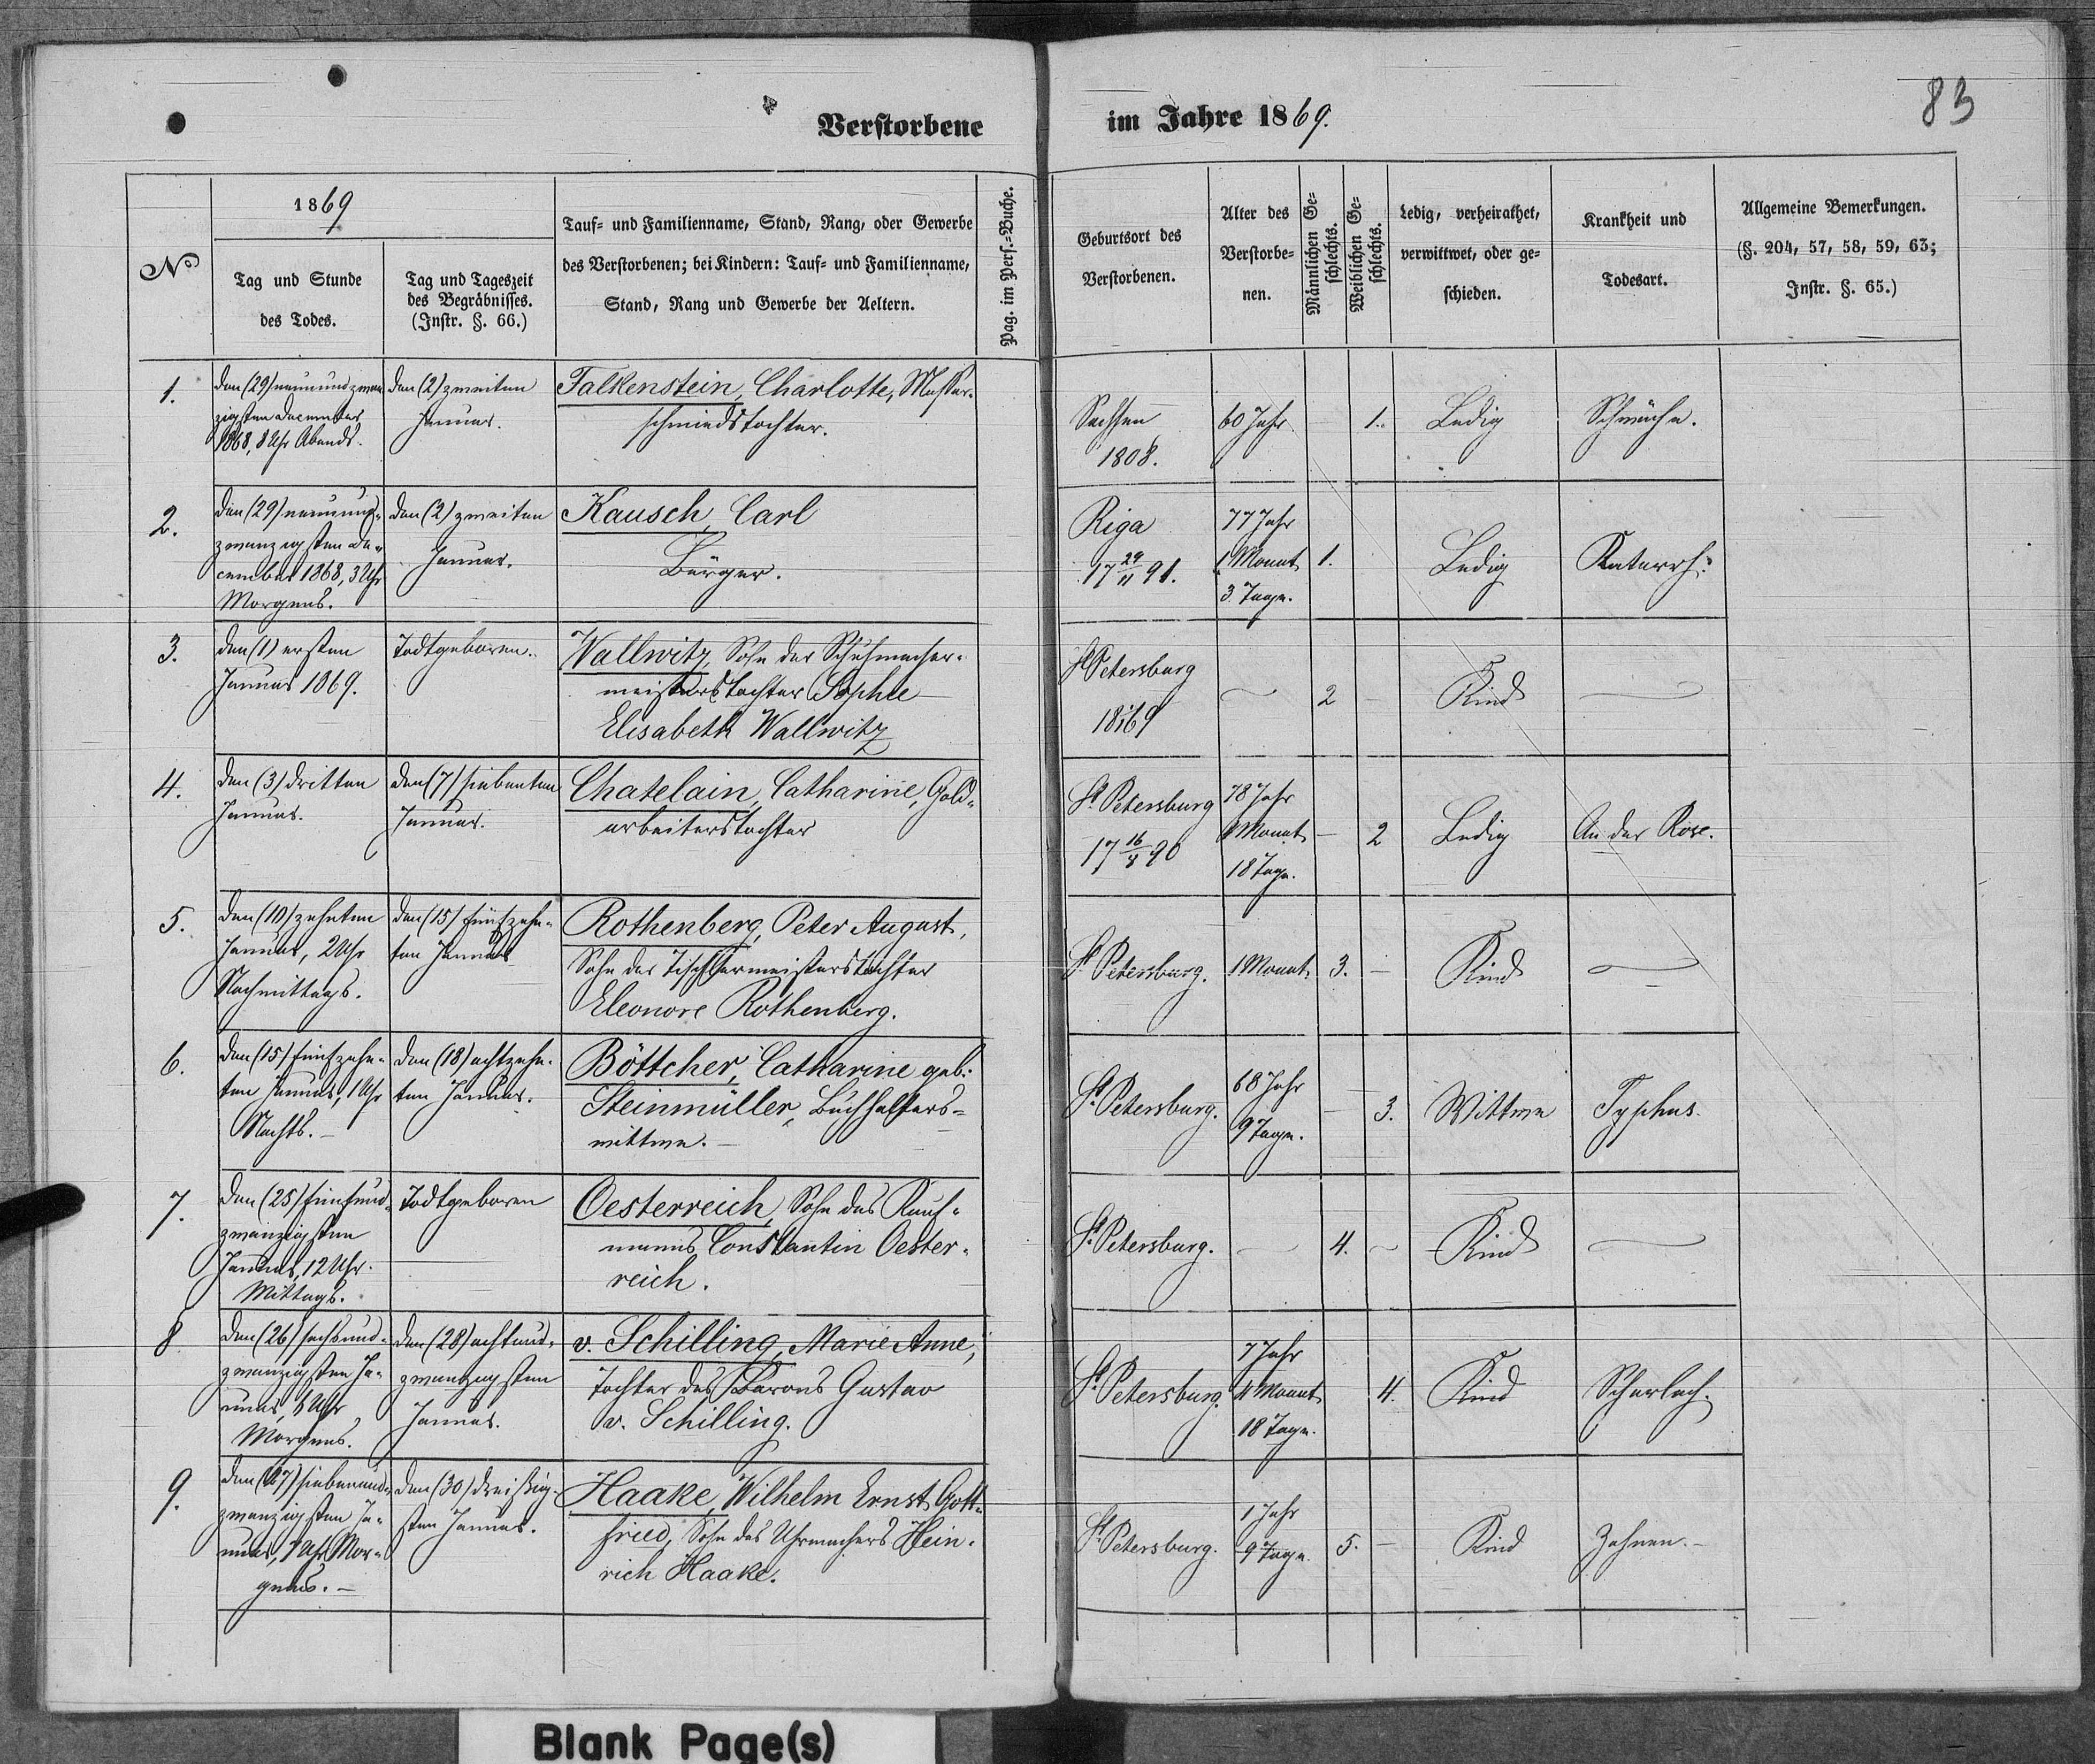 83
Verstorbene im Jahre 1869.
1869
№
Tag und Stunde
des Todes.
Tag und Tageszeit
des Begräbnisses.
(Instr. §. 66.)
Tauf- und Familienname, Stand, Rang, oder Gewerbe
des Verstorbenen; bei Kindern: Tauf- und Familienname,
Stand, Rang und Gewerbe der Aeltern.
Pag. im Pers.=Buche.
Geburtsort des
Verstorbenen.
Alter des
Verstorbe-
nen.
Männlichen Ge-
schlechts.
Weiblichen Ge-
schlechts.
Ledig, verheirathet,
verwittwet, oder ge-
schieden.
Krankheit und
Todesart.
Allgemeine Bemerkungen.
(§. 204, 57, 58, 59, 63;
Instr. §. 65.)
1.
den (29) neunundzwan
zigsten December
1868, 8 Uhr Abends.
den (2) zweiten
Januar.
Falkenstein, Charlotte, Messer-
schmiedstochter.
Sachsen
1808.
60 Jahr
1.
Ledig
Schwäche.
2.
den (29) neunund-
zwanzigsten De-
cember 1868, 3 Uhr
Morgens.
den (2) zweiten
Januar.
Kausch, Carl
Bürger.
Riga
17 29/11 91.
77 Jahr
1 Monat
3 Tage.
1.
Ledig
Katarrh.
3.
den (1) ersten
Januar 1869.
Todtgeboren.
Wallwitz, Sohn der Schuhmacher-
meisterstochter Sophie
Elisabeth Wallwitz
St Petersburg
2
Kind
4.
den (3) dritten
Januar.
den (7) siebenten
Januar.
Chatelain, Catharine, Gold-
arbeiterstochter
St. Petersburg
17 16/8 90
78 Jahr
Monat
18 Tage.
2
Ledig
An der Rose.
5.
den (10) zehnten
Januar, 2 Uhr
Nachmittags.
den (15) fünfzehn-
ten Januar
Rothenberg, Peter August,
Sohn der Tischlermeisterstochter
Eleonore Rothenberg.
St. Petersburg.
1 Monat
3.
Kind
6.
den (15) fünfzehn-
ten Januar, 1 Uhr
Nachts.
den (18) achtzehn-
ten Januar.
Böttcher, Catharine geb.
Steinmüller, Buchhalters-
wittwe.
St. Petersburg.
68 Jahr
9 Tage.
3.
Wittwe
Typhus.
7.
den (25) fünfund-
zwanzigsten
Januar, 12 Uhr
Mittags.
Todtgeboren
Oesterreich, Sohn des Kauf-
manns Constantin Oester-
reich.
St. Petersburg.
4.
Kind
8
den (26) sechsund-
zwanzigsten Ja-
nuar, 6 Uhr
Morgens.
den (28) achtund-
zwanzigsten
Januar.
v. Schilling, Marie Anne,
Tochter des Barons Gustav
v. Schilling.
St. Petersburg.
7 Jahr
4 Monat
18 Tage.
4.
Kind
Scharlach.
9.
den (27) siebenund-
zwanzigsten Ja-
nuar, 7 Uhr Mor-
gens.
den (30) dreißig-
sten Januar.
Haake, Wilhelm Ernst Gott-
fried, Sohn des Uhrmachers Hein-
rich Haake.
St. Petersburg.
1 Jahr
9 Tage.
5.
Kind
Zahnen.
Blank Page(s)